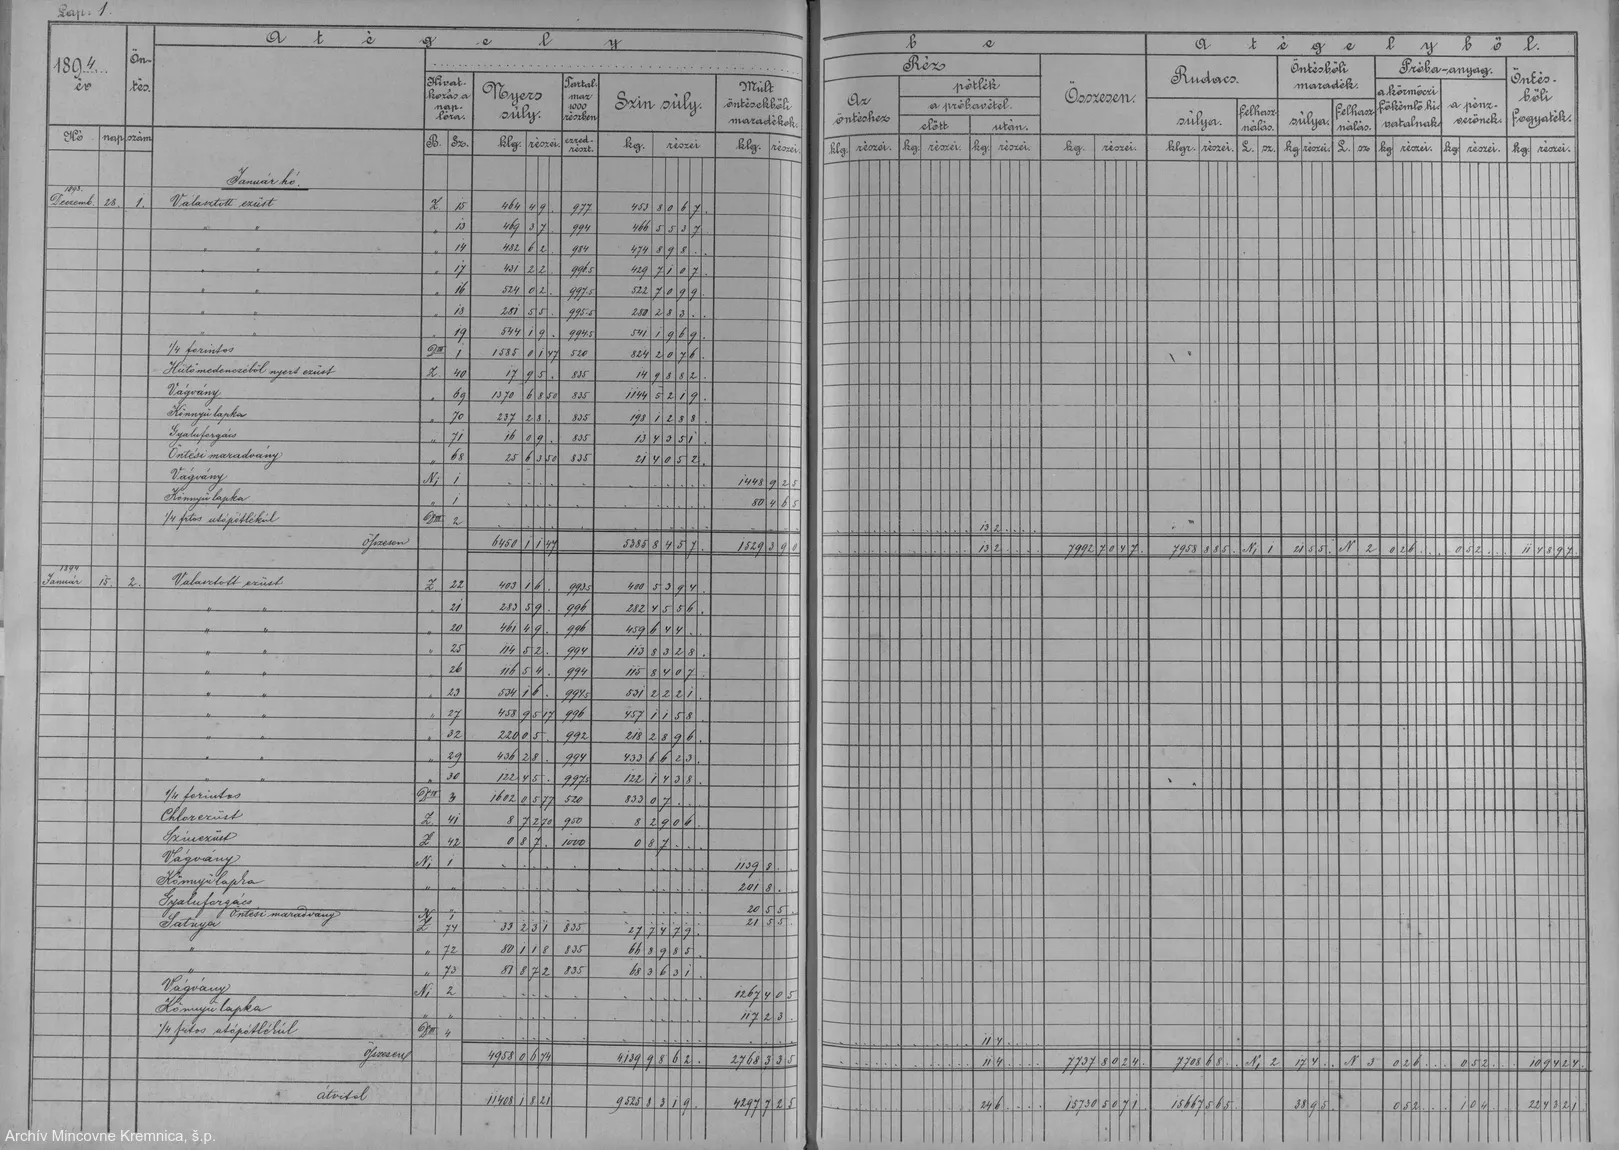 Lap. 1.
A tégely be
A tégelyből.
1894 év
Öntés.
Hó nap szám
Hivatkozás a naplóra.
B. Sz.
Nyers súly.
klg. részei
Tartalmaz 1000 részben
ezredrészt.
Szin súly.
kg. részei
Múlt öntésekbőli maradékok.
klg. részei.
Réz
Az öntéshez
klg. részei.
pótlék
a próbavétel.
előtt
után.
kg. részei. kg részei.
Összesen.
kg. részei.
Rudacs.
súlya. felhasználás.
klgr. részei. L. sz.
Öntésbőli maradék.
súlya. felhasználás.
kg részei. L. sz.
Próba-anyag.
a körmöczi főkémlő hivatalnak
a pénzverőnek.
kg részei. kg. részei.
Öntésbőli fogyaték.
kg részei.
Január hó.
1893.
Decemb. 28. 1. Választott ezüst Z 15 464 49. 977 453 8067.
" " " 13 469 37. 994 466 5537
" " " 14 482 62. 984 474 898.
" " " 17 431 22. 9965 429 7107.
" " " 16 524 02. 9975 522 7099.
" " " 18 281 55. 9955 280 283.
" " " 19 544 19. 9945 541 1969.
1/4 forintos 1 1585 0147 520 824 2076.
Hűtőmedenczéből nyert ezüst Z 40 17 95. 835 14 9882.
Vágvány " 69 1370 6850 835 1144 5219.
Könnyű lapka " 70 237 28. 835 198 1288
Gyaluforgács " 71 16 09. 835 13 4351
Öntési maradvány " 68 25 6350 835 21 4052.
Vágvány N1 1 1448 925
Könnyű lapka " 1 80 465
1/4 frtos utópótlékúl 2 132
Összesen 6450 1147 5385 8457. 1529 390 132 7992 7047 7958 885. N1 1 2155. N 2 026 052 11 4897
1894
Január 15. 2. Választott ezüst Z 22 403 16. 9935 400 5394
" " " 21 283 59. 996 282 4556
" " " 20 461 49. 996 459 644
" " " 25 114 52. 994 113 8328
" " " 26 116 54. 994 115 8407
" " " 23 534 16. 9945 531 2221
" " " 27 458 9517 996 457 1158
" " " 32 220 05. 992 218 2896
" " " 29 436 28. 994 433 6623
" " " 30 122 45. 9975 122 1438
1/4 forintos 3 1602 0577 520 833 07
Chlorezüst Z 41 8 7270 950 8 2906
Színezüst Z 42 0 87. 1000 0 87
Vágvány N1 1 1139 8
Könnyű lapka " " 201 8
Gyaluforgács " 20 55
Öntési maradvány N 1 21 55
Satnya Z 74 33 231 835 27 7479
" " 72 80 118 835 66 8985
" " 73 81 872 835 68 3631
Vágvány N1 2 1267 405
Könnyű lapka " " 117 23
1/4 frtos utópótlékúl 4 114
Összesen 4958 0674 4139 9862. 2768 335 114 7737 8024 7708 68. N1 2 174 N 3 026 052 10 9424
átvitel 11408 1821 9525 8319. 4297 725 246 15730 5071 15667 565 3895 052 104 22 4321
Archív Mincovne Kremnica, š.p.